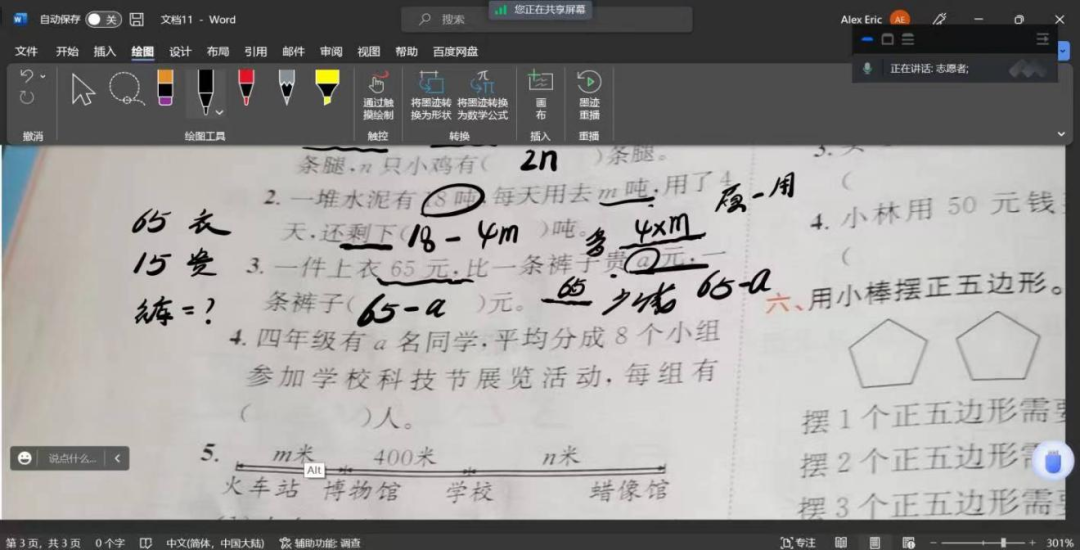 自动保存 关 文档11 - Word 搜索 您正在共享屏幕 Alex Eric AE
文件 开始 插入 绘图 设计 布局 引用 邮件 审阅 视图 帮助 百度网盘
正在讲话: 志愿者;
通过触摸绘制
将墨迹转换为形状
将墨迹转换为数学公式
画布
墨迹重播
撤消 绘图工具 触控 转换 插入 重播
条腿,n 只小鸡有( 2n )条腿。
2. 一堆水泥有 18 吨,每天用去 m 吨,用了 4
天,还剩下( 18-4m )吨。
4×m
原-用
65 衣
15 贵
裤=?
3. 一件上衣 65 元,比一条裤子贵 a 元,一
条裤子( 65-a )元。
65 65-a
4. 四年级有 a 名同学,平均分成 8 个小组
参加学校科技节展览活动,每组有
( )人。
5. m米 400米 n米
Alt
火车站 博物馆 学校 蜡像馆
3.
(
4. 小林用 50 元钱
(
六、用小棒摆正五边形。
摆 1 个正五边形需要
摆 2 个正五边形需
摆 3 个正五边形需要
说点什么...
第 3 页, 共 3 页 0 个字 中文(简体, 中国大陆) 辅助功能: 调查 专注 301%